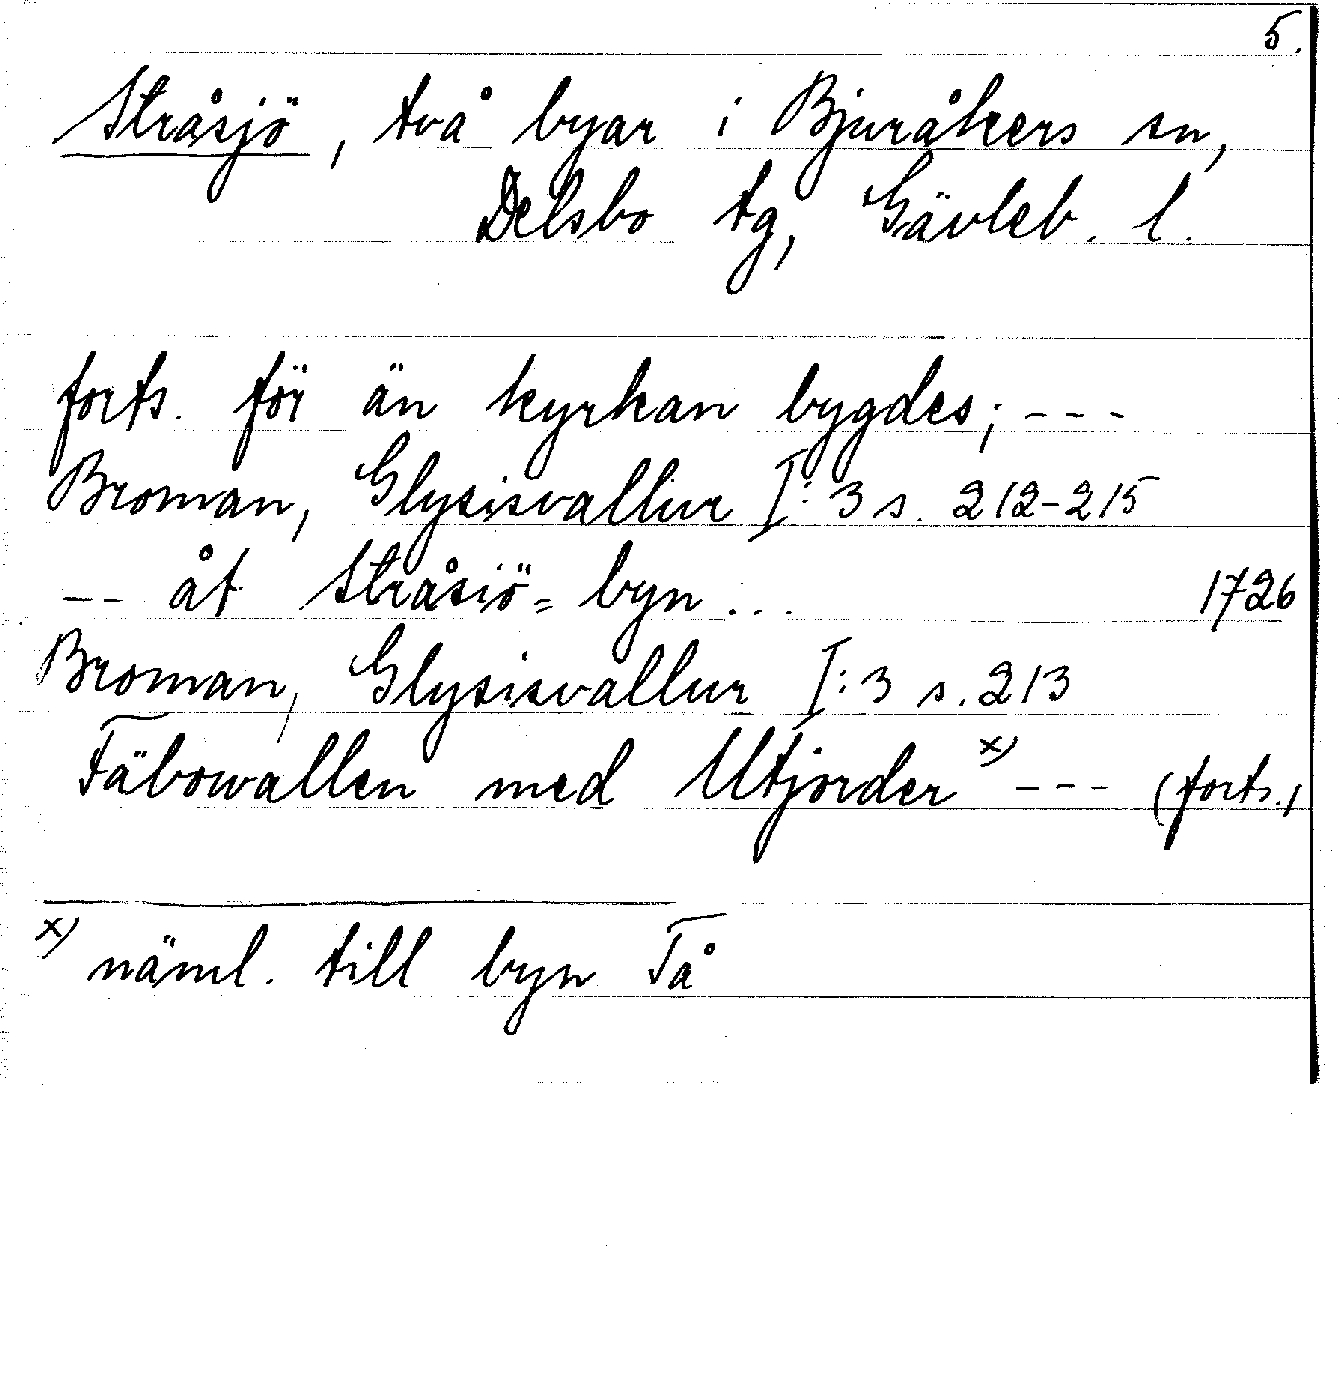 5.
Stråsjö, två byar i Bjuråkers sn,
Delsbo tg, Gävleb. l.
forts. för än kyrkan bygdes; ---
Broman, Glysisvallur I:3 s. 212-215
-- åt Stråsiö=byn... 1726
Broman, Glysisvallur I:3 s. 213
Fäbowallen med Utjorder x) --- (forts.)
x) näml. till byn Tå